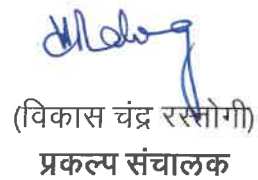 (विकास चंद्र रस्तोगी)
प्रकल्प संचालक